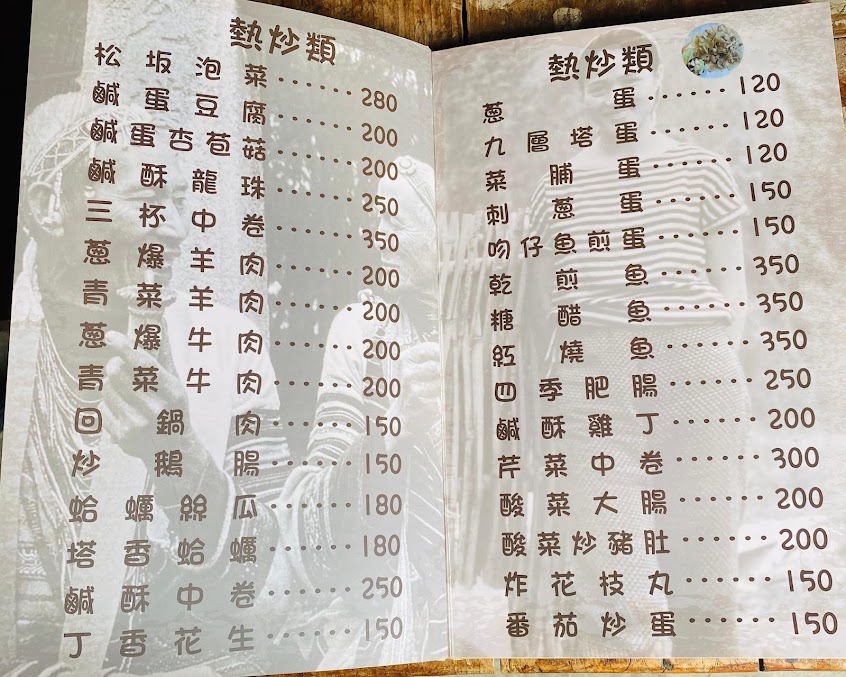 熱炒類
松坂泡菜······280
鹹蛋豆腐······200
鹹蛋杏苞菇······200
鹹酥龍珠······250
三杯中卷······350
蔥爆羊肉······200
青菜羊肉······200
蔥爆牛肉······200
青菜牛肉······200
回鍋肉······150
炒鵝腸······150
蛤蠣絲瓜······180
塔香蛤蠣······180
鹹酥中卷······250
丁香花生······150
熱炒類
蔥蛋······120
九層塔蛋······120
菜脯蛋······120
刺蔥蛋······150
吻仔魚煎蛋······150
乾煎魚······350
糖醋魚······350
紅燒魚······350
四季肥腸······250
鹹酥雞丁······200
芹菜中卷······300
酸菜大腸······200
酸菜炒豬肚······200
炸花枝丸······150
番茄炒蛋······150